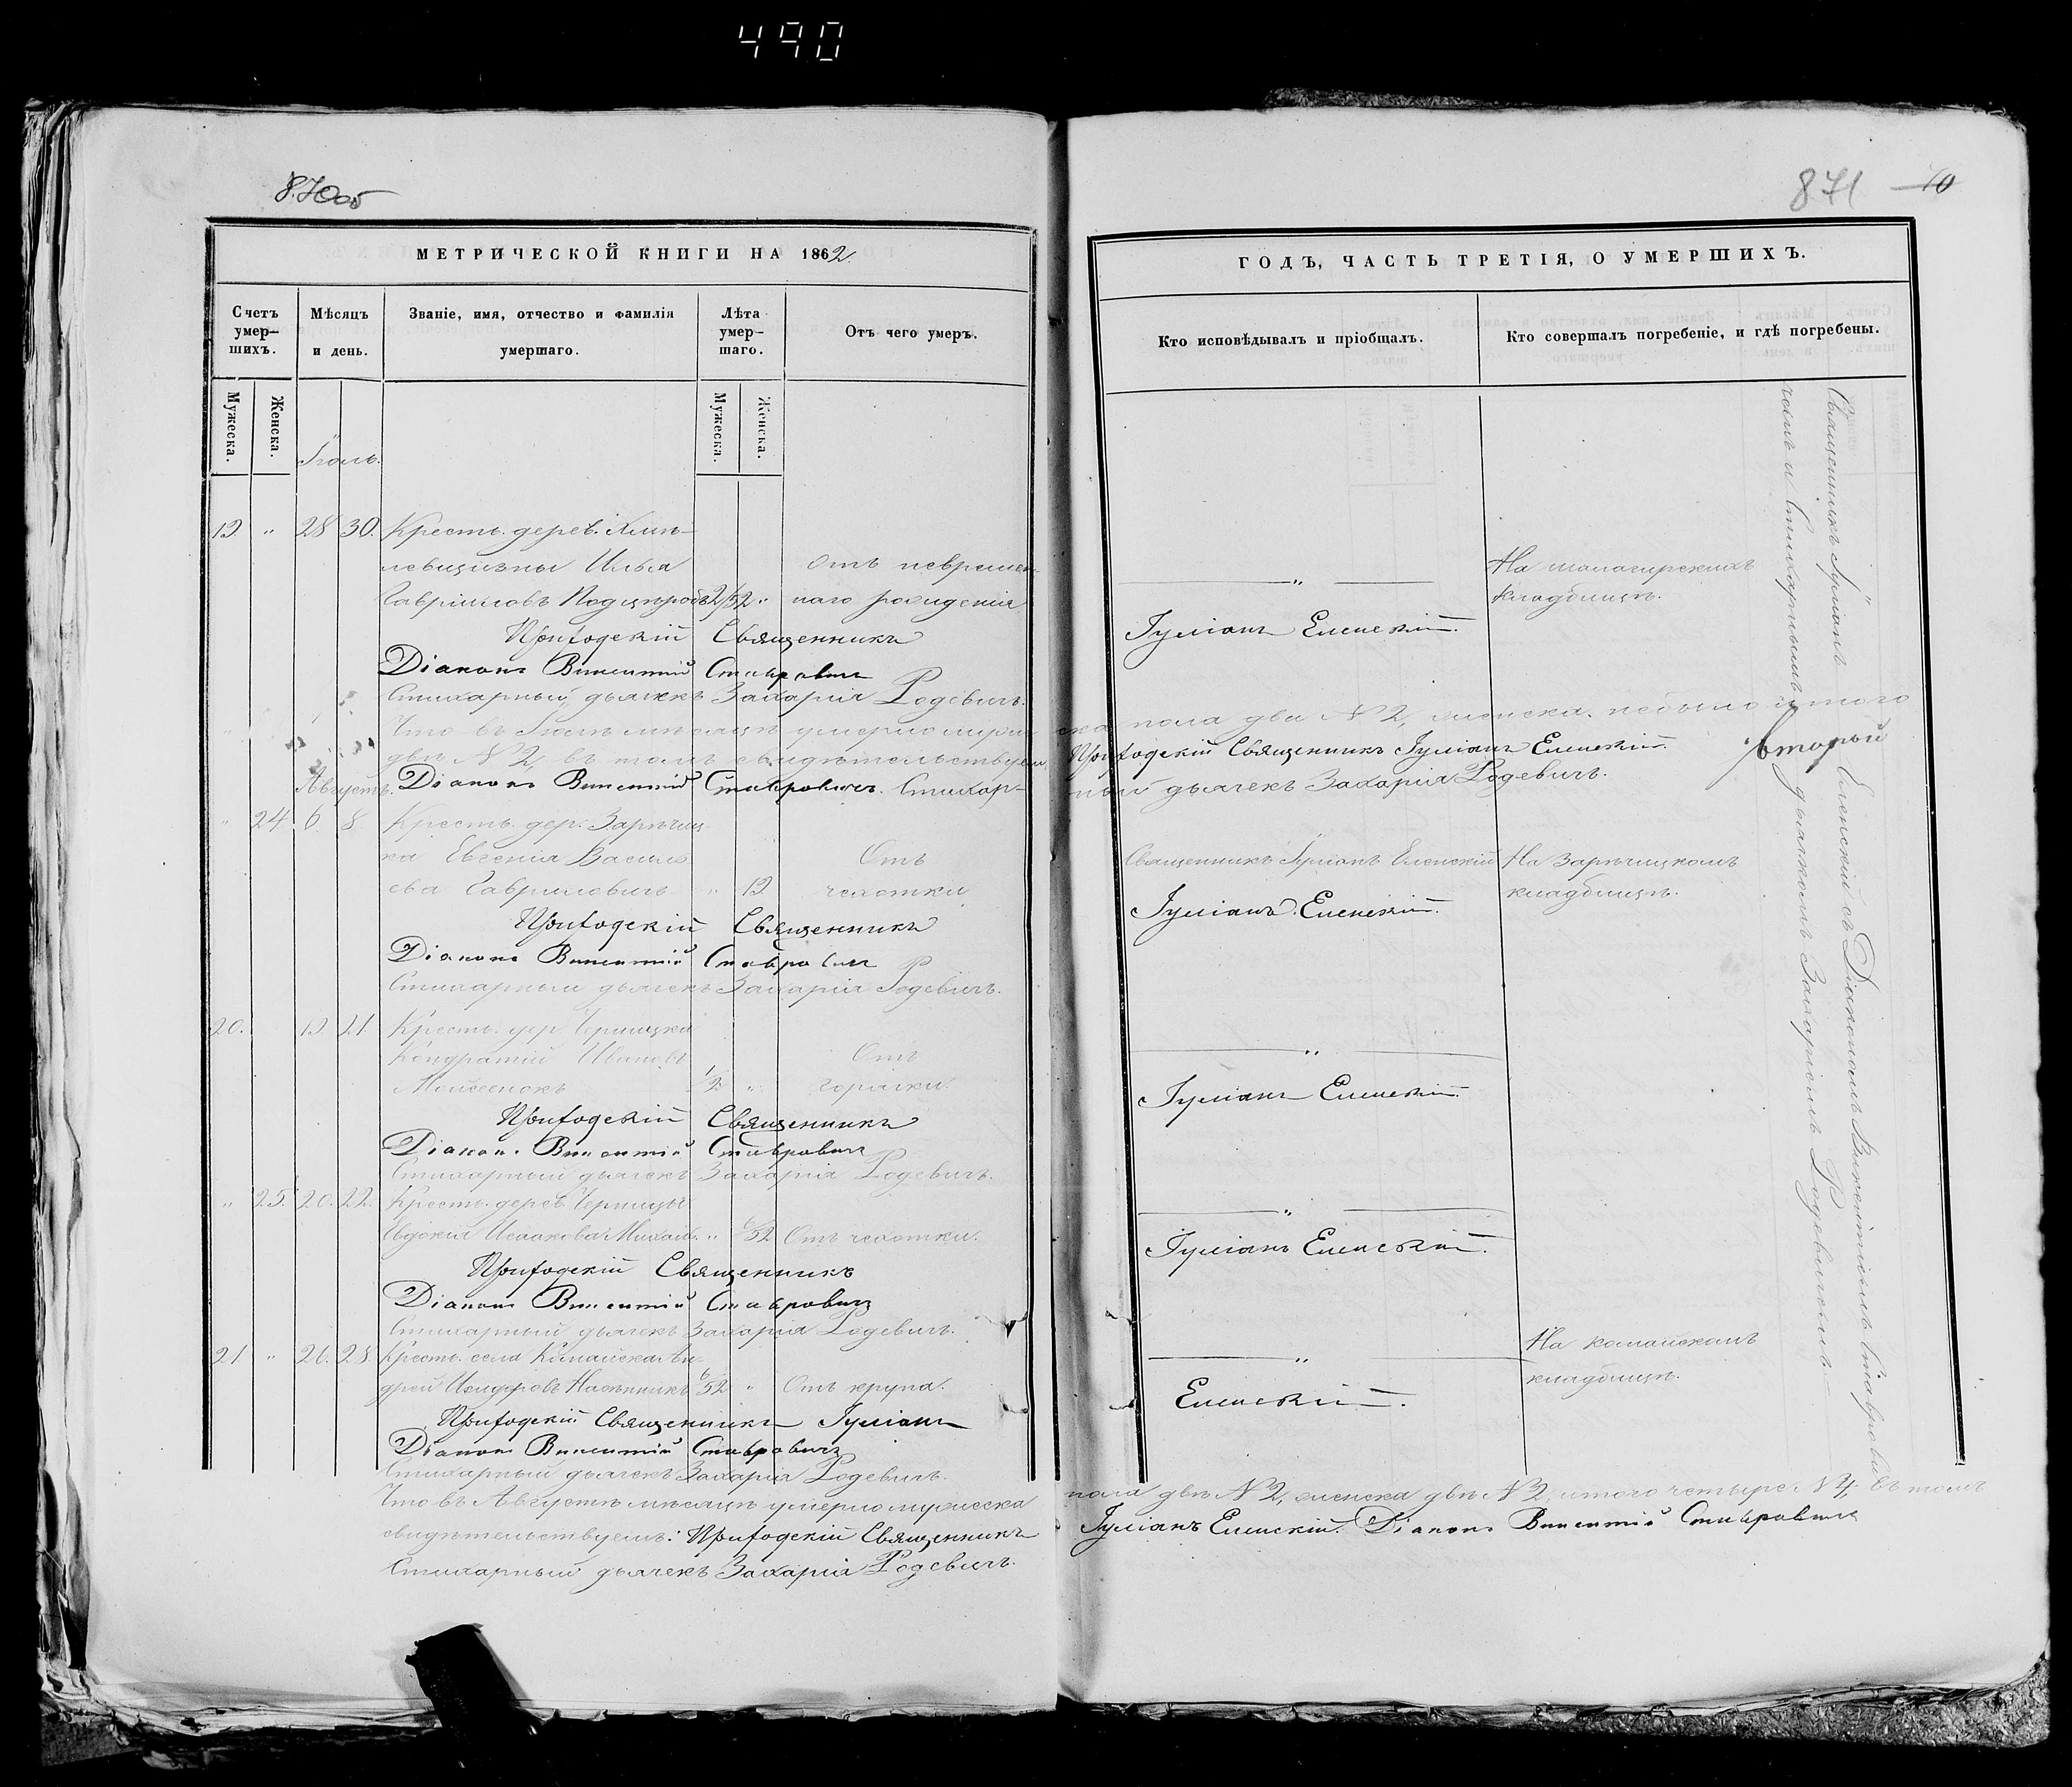 490
870об
МЕТРИЧЕСКОЙ КНИГИ НА 1862
Счетъ умер-шихъ.
Мѣсяцъ и день.
Званіе, имя, отчество и фамилія умершаго.
Лѣта умер-шаго.
Отъ чего умеръ.
Мужеска.
Женска.
Мужеска.
Женска.
Іюль.
19. " 28 30. Крест. дерев.
Илья Отъ невремен-
Гавріиловъ 2/52 " наго рожденія
Приходскій Священникъ
Діаконъ Викентій Ставровичъ
Стихарный дьячекъ Захарія Родевичъ.
Что въ Іюлѣ мѣсяцѣ умерло муже
два № 2, въ томъ свидѣтельствуемъ,
Августъ. Діаконъ Викентій Ставровичъ. Стихар-
" 24. 6. 8 Крест. дер. Зарѣчиц-
ка Евгенія Василь- Отъ
ева Гавриловичъ " 19 чехотки
Приходскій Священникъ
Діаконъ Викентій Ставровичъ
Стихарный дьячекъ Захарія Родевичъ.
20. 19 21. Крест. дер.
Кондратій Ивановъ Отъ
1/2 " горячки.
Приходскій Священникъ
Діаконъ Викентій Ставровичъ
Стихарный дьячекъ Захарія Родевичъ.
" 25. 20. 22. Крест. дерев.
Евдокія Исаакова " /52 Отъ чехотки.
Приходскій Священникъ
Діаконъ Викентій Ставровичъ
Стихарный дьячекъ Захарія Родевичъ.
21 " 26. 28. Крест. села Комайска Ан-
дрей Исидоровъ 6/52 " Отъ крупа.
Приходскій Священникъ Іуліанъ
Діаконъ Викентій Ставровичъ
Стихарный дьячекъ Захарія Родевичъ.
Что въ Августѣ мѣсяцѣ умерло мужеска
свидѣтельствуемъ: Приходскій Священникъ
Стихарный дьячекъ Захарія Родевичъ.
871 10
ГОДЪ, ЧАСТЬ ТРЕТІЯ, О УМЕРШИХЪ.
Кто исповѣдывалъ и пріобщалъ.
Кто совершалъ погребеніе, и гдѣ погребены.
" На
кладбищѣ.
Іуліанъ Еленскій.
ска пола два № 2, женска. небыло итого
Приходскій Священникъ Іуліанъ Еленскій.
ный дьячекъ Захарія Родевичъ.
Священникъ Іуліанъ Еленскій На Зарѣчицкомъ
кладбищѣ.
Іуліанъ Еленскій.
"
Іуліанъ Еленскій.
"
Іуліанъ Еленскій.
" На комайскомъ
кладбищѣ.
Еленскій.
пола двѣ № 2, женска двѣ № 2, итого четыре № 4, въ томъ
Іуліанъ Еленскій. Діаконъ Викентій Ставровичъ
Священникъ Іуліанъ Еленскій съ Діакономъ Викентіемъ Ставрови-
чемъ и Стихарнымъ дьячкомъ Захаріемъ Родевичемъ.